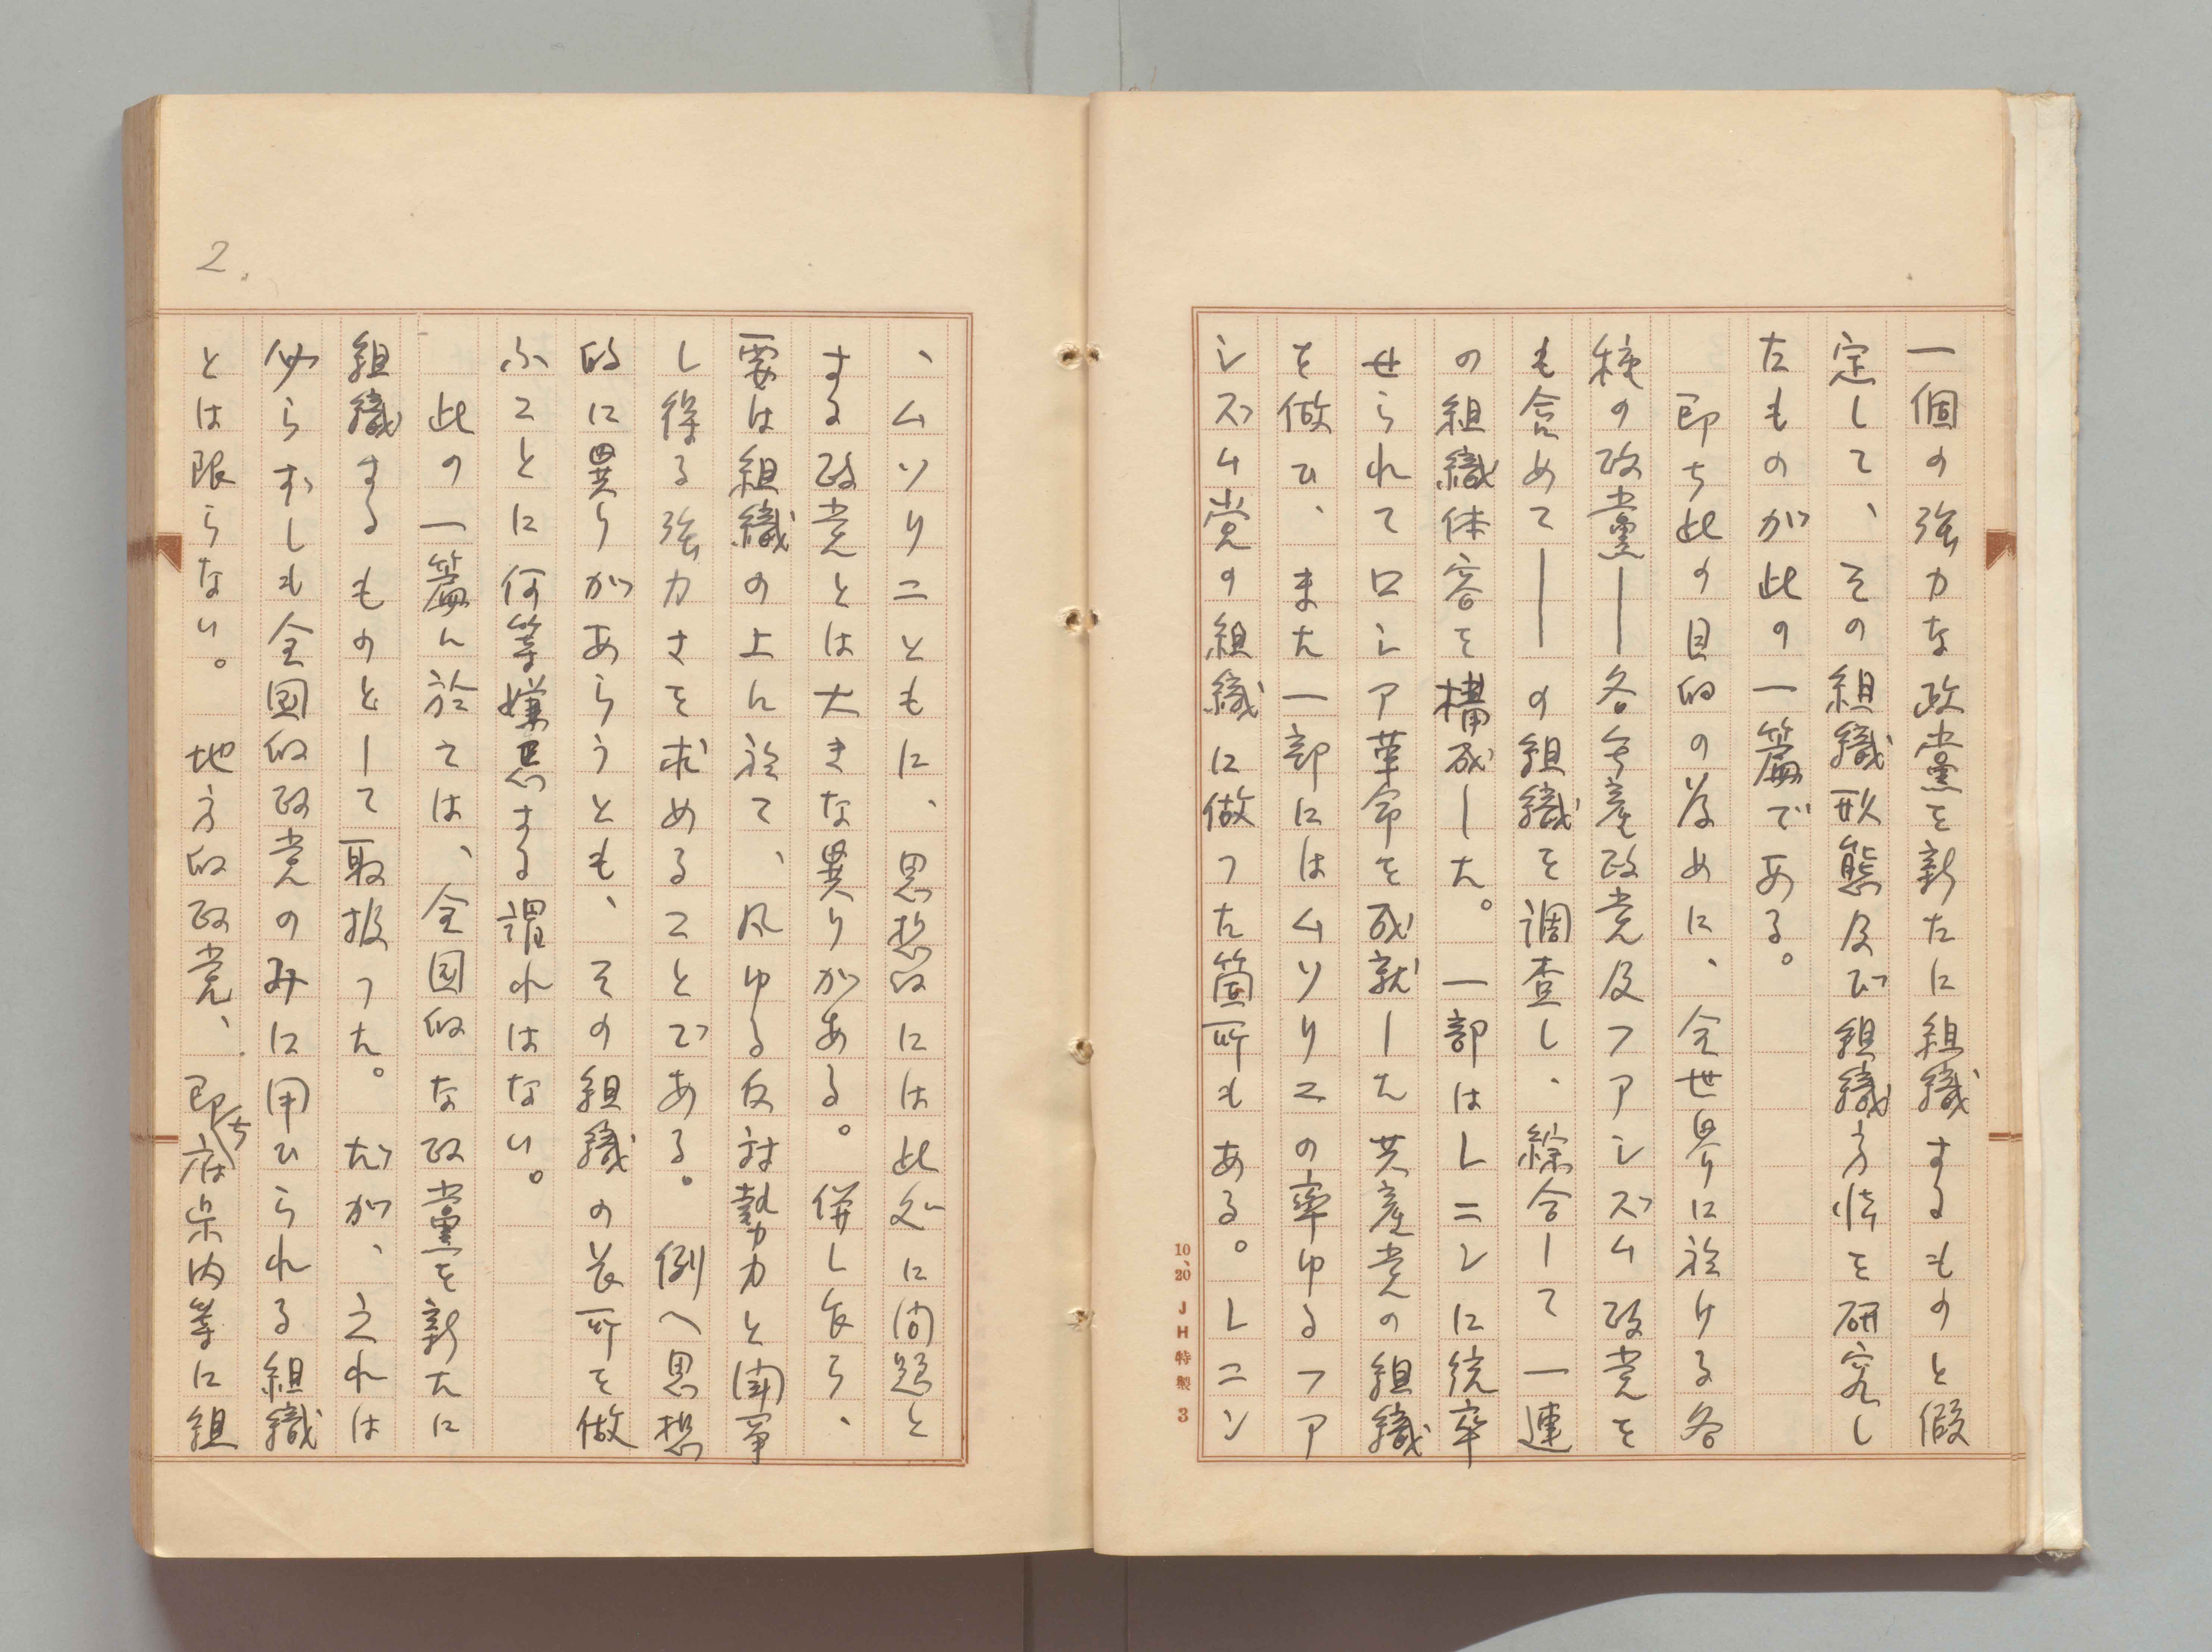 一個の強力な政黨を新たに組織するものと假
定して、その組織形態及び組織方法を研究し
たものが此の一篇である。
即ち此の目的の為めに、全世界に於ける各
種の政黨――各無産政党及ファシズム政党を
も含めて――の組織を調査し、綜合して一連
の組織体容を構成した。一部はレニンに統率
せられてロシア革命を成就した共産党の組織
を倣ひ、また一部にはムソリニの率ゆるファ
シズム党の組織に倣つた箇所もある。レニン
、ムソリニともに、思想的には此処に問題と
する政党とは大きな異りがある。併し乍ら、
要は組織の上に於て、凡ゆる反対勢力と闘爭
し得る強力さを求めることである。例へ思想
的に異りがあらうとも、その組織の長所を倣
ふことに何等嫌惡する謂れはない。
此の一篇に於ては、全国的な政黨を新たに
組織するものとして取扱つた。だが、之れは
必らずしも全國的政党のみに用ひられる組織
とは限らない。地方的政党、即ち府県内等に組
2.
10、20 JH特製 3